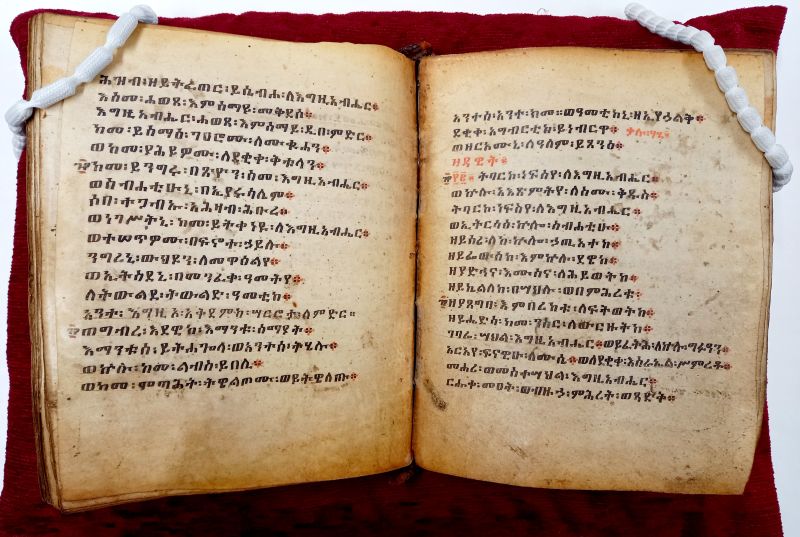 ሕዝብ፡ ዘይትፈጠር፡ ይሴብሖ፡ ለእግዚአብሔር።
እስመ፡ ሐወጸ፡ እምሰማይ፡ መቅደሱ።
እግዚአብሔር፡ ሐወጸ፡ እምሰማይ፡ ዲበ፡ ምድር።
ከመ፡ ይስማዕ፡ ገዓሮሙ፡ ለሙቁሐን።
ወከመ፡ ያሕይዎሙ፡ ለደቂቀ፡ ቅቱላን።
ከመ፡ ይንግሩ፡ በጽዮን፡ ስመ፡ እግዚአብሔር።
ወስብሐቲሁኒ፡ በኢየሩሳሌም።
ሶበ፡ ተጋብኡ፡ አሕዛብ፡ ኅቡረ።
ወነገሥትኒ፡ ከመ፡ ይትቀነዩ፡ ለእግዚአብሔር።
ወተሠጥዎሙ፡ በፍኖተ፡ ኃይሉ።
ንግረኒ፡ ውኅዶን፡ ለመዋዕልየ።
ወኢትስደኒ፡ በመንፈቀ፡ ዓመትየ።
ለትውልደ፡ ትውልድ፡ ዓመቲከ።
አንተ፡ እግዚኦ፡ አቅደምከ፡ ሣርሮታ፡ ለምድር።
ግብረ፡ እደዊከ፡ እማንቱ፡ ሰማያት።
እማንቱሰ፡ ይትሐጐላ፡ ወአንተሰ፡ ትሄሉ።
ወኵሉ፡ ከመ፡ ልብስ፡ ይበሊ።
ወከመ፡ ሞጣሕት፡ ትዌልጦሙ፡ ወይትዌለጡ።
አንተሰ፡ አንተ፡ ከመ። ወዓመቲከኒ፡ ዘኢየኃልቅ።
ደቂቀ፡ አግብርቲከ፡ ይነብርዋ።
ወዘርዖሙኒ፡ ለዓለም፡ ይጸንዕ።
ዘዳዊት።
፻፪ ትባርኮ፡ ነፍስየ፡ ለእግዚአብሔር።
ወኵሉ፡ አዕጽምትየ፡ ለስሙ፡ ቅዱስ።
ትባርኮ፡ ነፍስየ፡ ለእግዚአብሔር።
ወኢትርሳዕ፡ ኵሎ፡ ስብሐቲሁ።
ዘይሰሪ፡ ለከ፡ ኵሎ፡ ኃጢአተከ።
ዘይፌውሰከ፡ እምኵሉ፡ ደዌከ።
ዘያድኅና፡ እሙስና፡ ለሕይወትከ።
ዘይኬልለከ፡ በሣህሉ፡ ወበምሕረቱ።
ዘያጸግባ፡ እምበረከቱ፡ ለፍትወትከ።
ዘይሔድሳ፡ ከመ፡ ንስር፡ ለውርዙትከ።
ገባሬ፡ ሣህል፡ እግዚአብሔር። ወይፈትሕ፡ ለኵሉ፡ ግፉዓን።
አርአየ፡ ፍናዊሁ፡ ለሙሴ። ወለደቂቀ፡ እስራኤል፡ ሥምረቶ።
መሐሪ፡ ወመስተሣህል፡ እግዚአብሔር።
ርኁቀ፡ መዐት፡ ወብዙኃ፡ ምሕረት፡ ወጻድቅ።